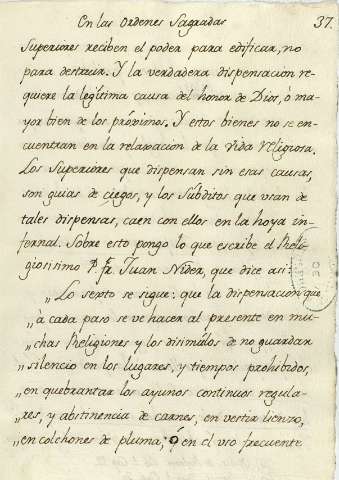 En las Ordenes Sagradas 37.
Superiores reciben el poder para edificar, no
para destruir. Y la verdadera dispensacion re-
quiere la legitima causa del honor de Dios, ò ma-
yor bien de los próximos. Y estos bienes no se en-
cuentran en la relaxacion de la Vida Religiosa.
Los Superiores que dispensan sin esas causas,
son guias de ciegos, y los Súbditos que usan de
tales dispensas, caen con ellos en la hoya in-
fernal. Sobre esto pongo lo que escribe el Reli-
giosisimo P. fr. Juan Nider, que dice asi:
„ Lo septo se sigue: que la dispensacion que
„ à cada paso se ve hacer al presente en mu-
„ chas Religiones y los disimúlos de no guardar
„ silencio en los lugares, y tiempos prohibidos,
„ en quebrantar los ayunos continuos regula-
„ res, y abstinencia de carnes, en vestir lienzo,
„ en colchones de pluma, ò en el uso frecuente